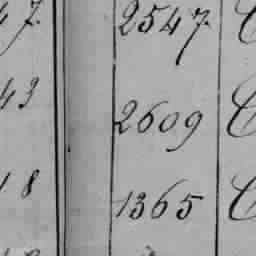 47. 2547. C
43 2609 C
18 1365 C